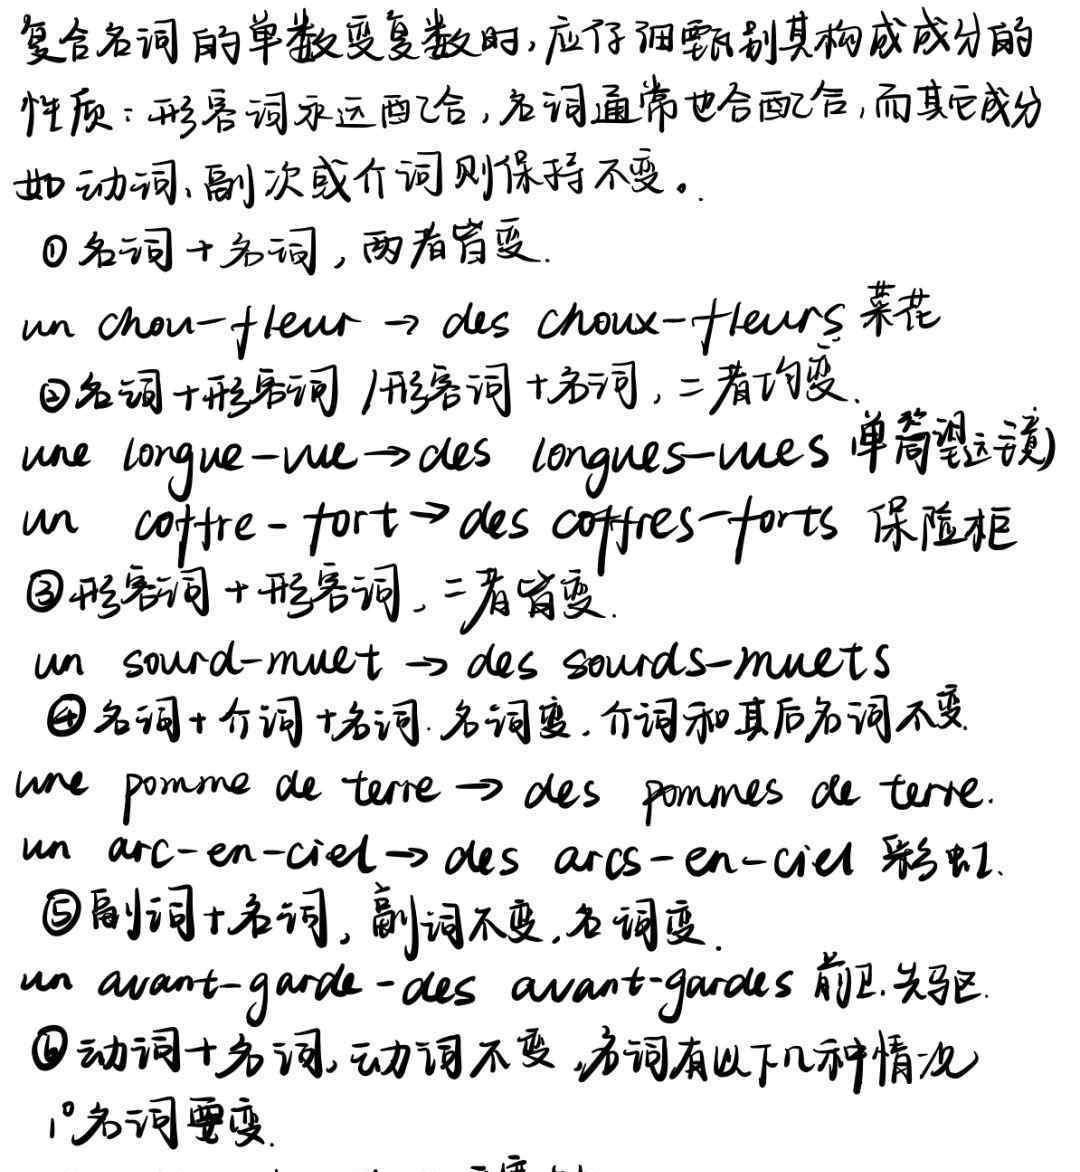 复合名词的单数变复数时,应仔细甄别其构成成分的
性质:形容词永远配合,名词通常也会配合,而其它成分
如动词、副次或介词则保持不变。
①名词+名词,两者皆变.
un chou-fleur → des choux-fleurs 菜花
②名词+形容词/形容词+名词,二者均变.
une longue-vue → des longues-vues 单筒望远镜)
un coffre-fort → des coffres-forts 保险柜
③形容词+形容词,二者皆变.
un sourd-muet → des sourds-muets
④名词+介词+名词.名词变,介词和其后名词不变.
une pomme de terre → des pommes de terre.
un arc-en-ciel → des arcs-en-ciel 彩虹.
⑤副词+名词,副词不变,名词变.
un avant-garde - des avant-gardes 前卫.先驱.
⑥动词+名词,动词不变,名词有以下几种情况
1°名词要变.